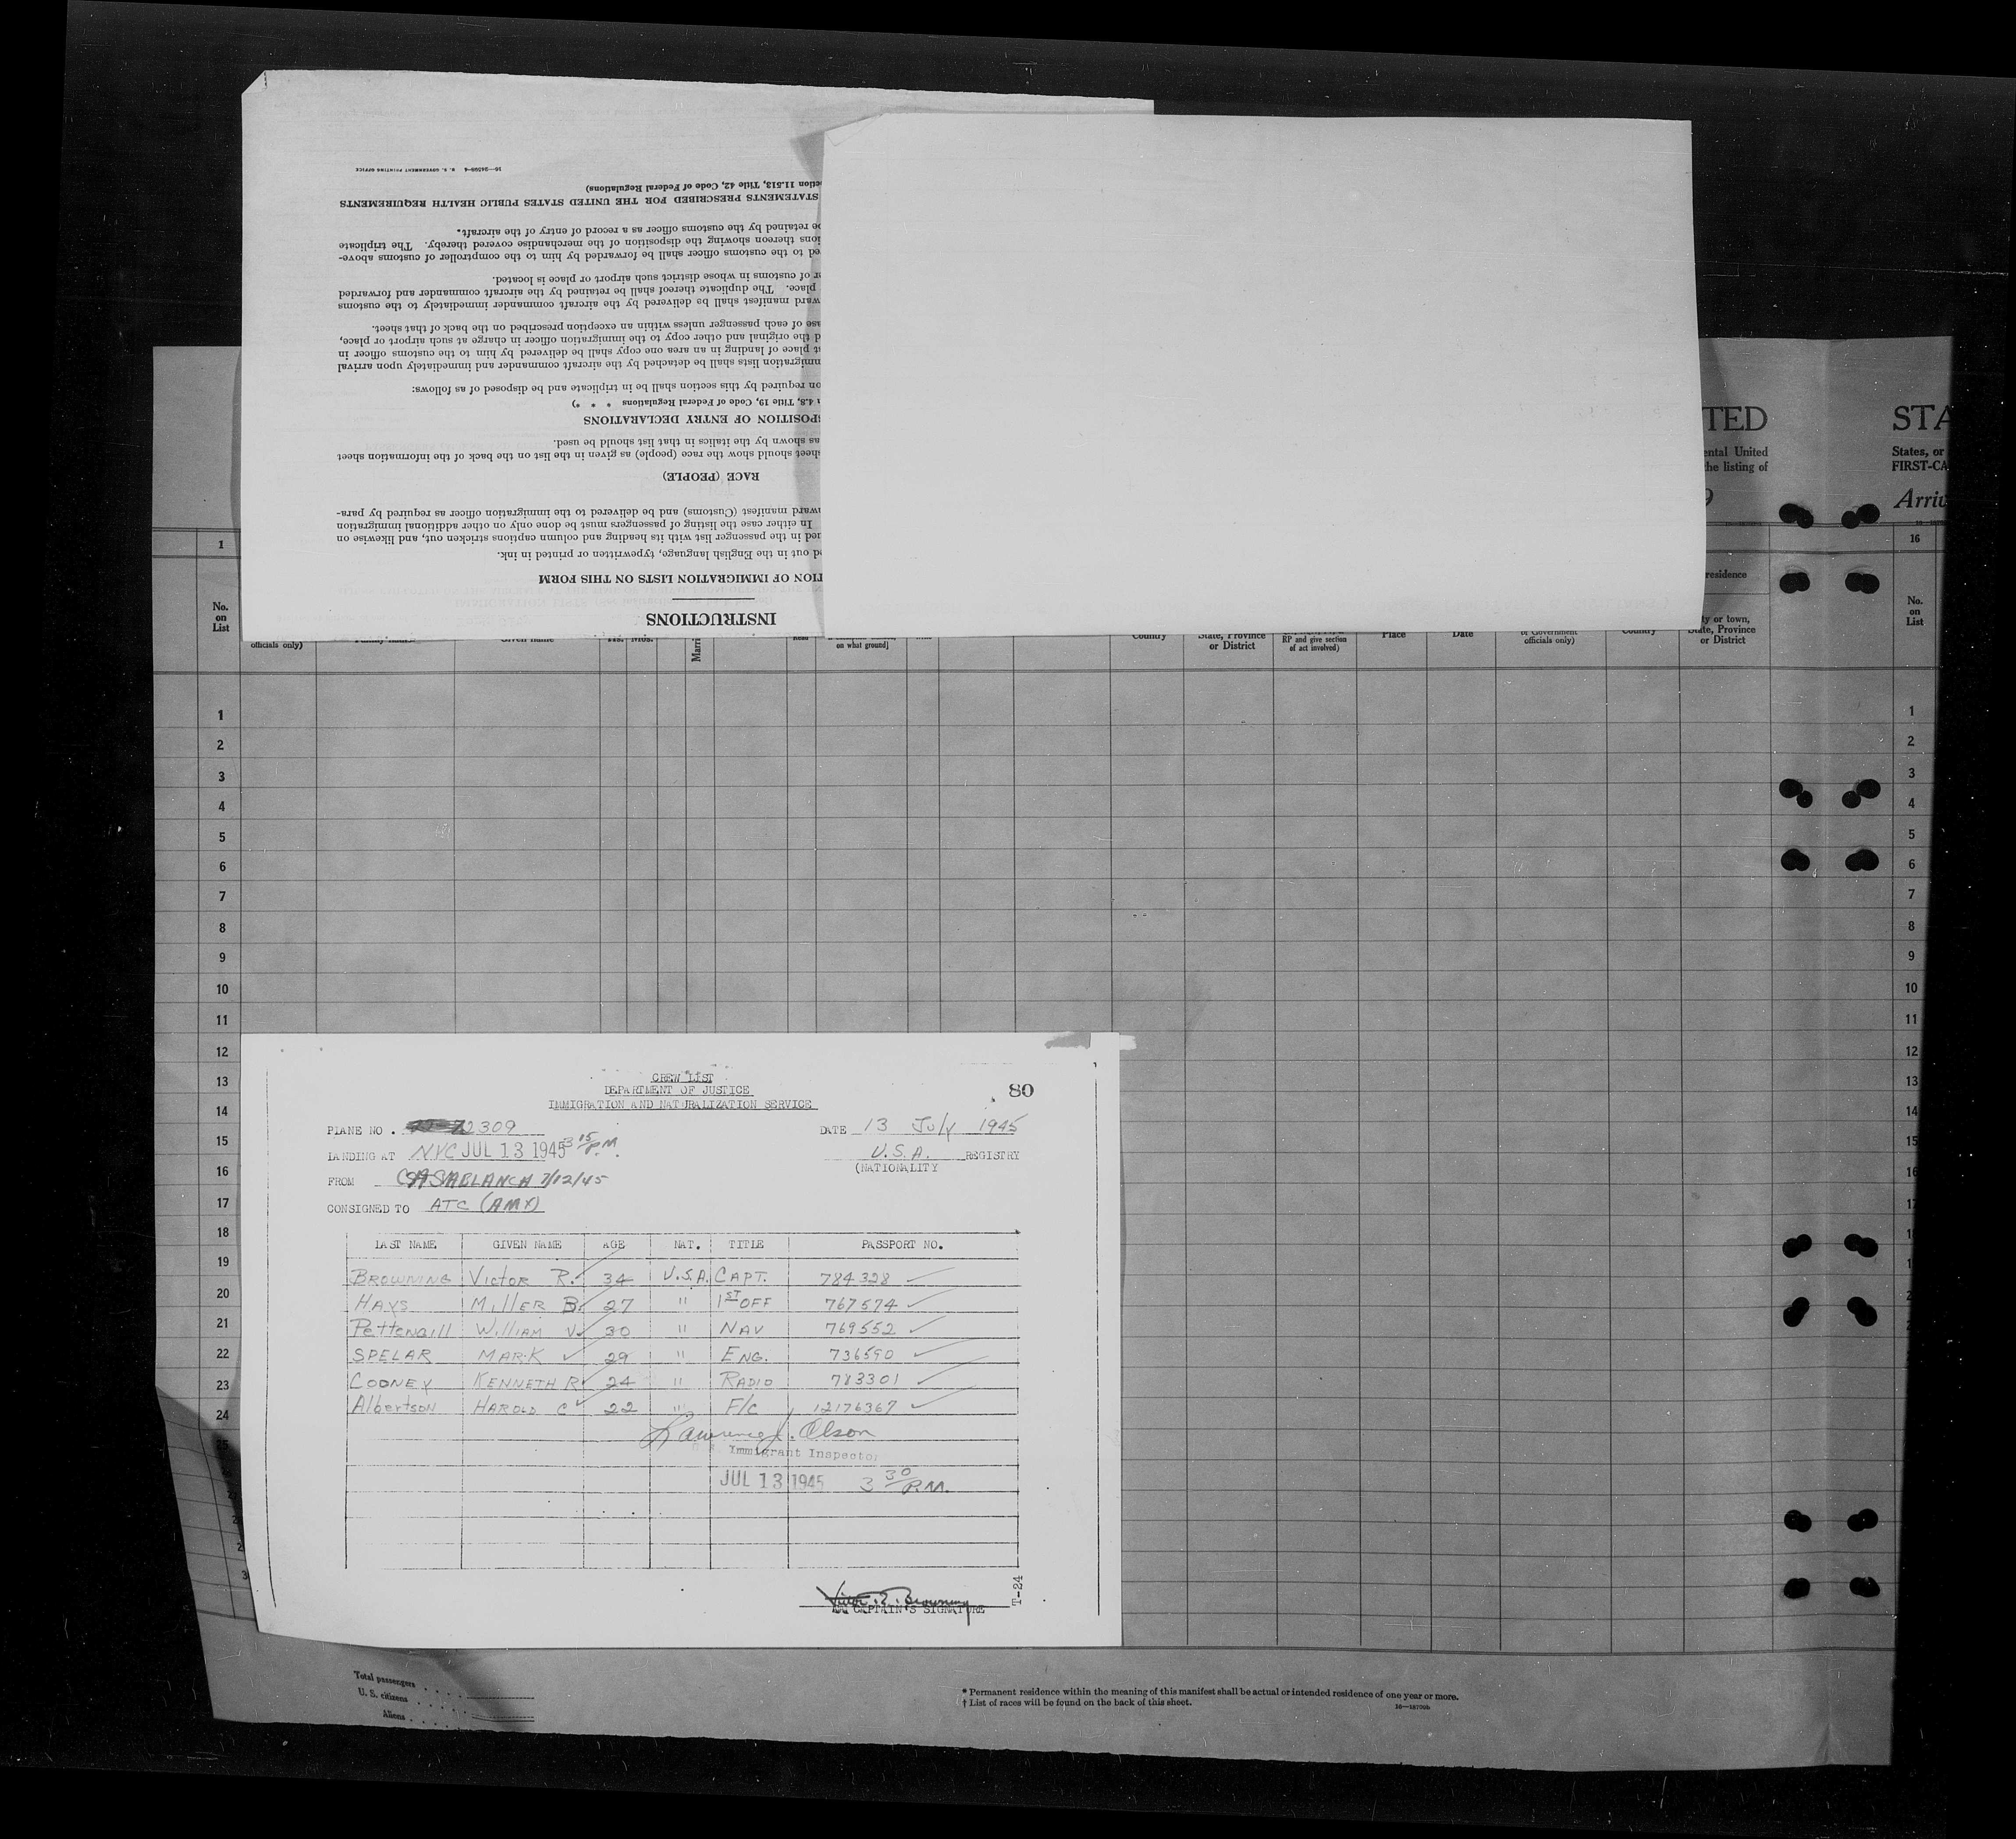 16—24506-4 U. S. GOVERNMENT PRINTING OFFICE
ction 11.513, Title 42, Code of Federal Regulations)
STATEMENTS PRESCRIBED FOR THE UNITED STATES PUBLIC HEALTH REQUIREMENTS
be retained by the customs officer as a record of entry of the aircraft.
ions thereon showing the disposition of the merchandise covered thereby. The triplicate
ed to the customs officer shall be forwarded by him to the comptroller of customs above-
or of customs in whose district such airport or place is located.
place. The duplicate thereof shall be retained by the aircraft commander and forwarded
ward manifest shall be delivered by the aircraft commander immediately to the customs
ase of each passenger unless within an exception prescribed on the back of that sheet.
d the original and other copy to the immigration officer in charge at such airport or place,
t place of landing in an area one copy shall be delivered by him to the customs officer in
mmigration lists shall be detached by the aircraft commander and immediately upon arrival
on required by this section shall be in triplicate and be disposed of as follows:
n 4.8, Title 19, Code of Federal Regulations * * *)
POSITION OF ENTRY DECLARATIONS
as shown by the italics in that list should be used.
sheet should show the race (people) as given in the list on the back of the information sheet
RACE (PEOPLE)
ward manifest (Customs) and be delivered to the immigration officer as required by para-
In either case the listing of passengers must be done only on other additional immigration
ued in the passenger list with its heading and column captions stricken out, and likewise on
ed out in the English language, typewritten or printed in ink.
TION OF IMMIGRATION LISTS ON THIS FORM
INSTRUCTIONS
TED STA
ental United States, or
he listing of FIRST-CA
9 Arriv
1 16
residence
No. on List
officials only) Given name Yrs. Mos. Marri Read on what ground] Country State, Province or District RP and give section of act involved) Place Date of Government officials only) Country ty or town, State, Province or District
No. on List
1 1
2 2
3 3
4 4
5 5
6 6
7 7
8 8
9 9
10 10
11 11
12 12
13 13
14 14
15 15
16 16
17 17
18 18
19
20
21
22
23
24
25
CREW LIST
DEPARTMENT OF JUSTICE 80
IMMIGRATION AND NATURALIZATION SERVICE
PLANE NO. 72309 DATE 13 July 1945
LANDING AT NYC JUL 13 1945 3 15 P.M. U.S.A. REGISTRY
(NATIONALITY
FROM CASABLANCA 7/12/45
CONSIGNED TO ATC (AMX)
LAST NAME GIVEN NAME AGE NAT. TITLE PASSPORT NO.
BROWNING Victor R. 34 U.S.A. CAPT. 784328
HAYS MILLER B. 27 " 1ST OFF 767574
Pettengill William V. 30 " NAV 769552
SPELAR MARK 29 " ENG. 736590
COONEY KENNETH R 24 " RADIO 783301
Albertson HAROLD C 22 " F/C 12176367
Lawrence J. Olson
Immigrant Inspector
JUL 13 1945 3 30 P.M.
Victor R. Browning
CAPTAIN'S SIGNATURE
T-24
Total passengers
U. S. citizens
Aliens
* Permanent residence within the meaning of this manifest shall be actual or intended residence of one year or more.
† List of races will be found on the back of this sheet.
16—18700b